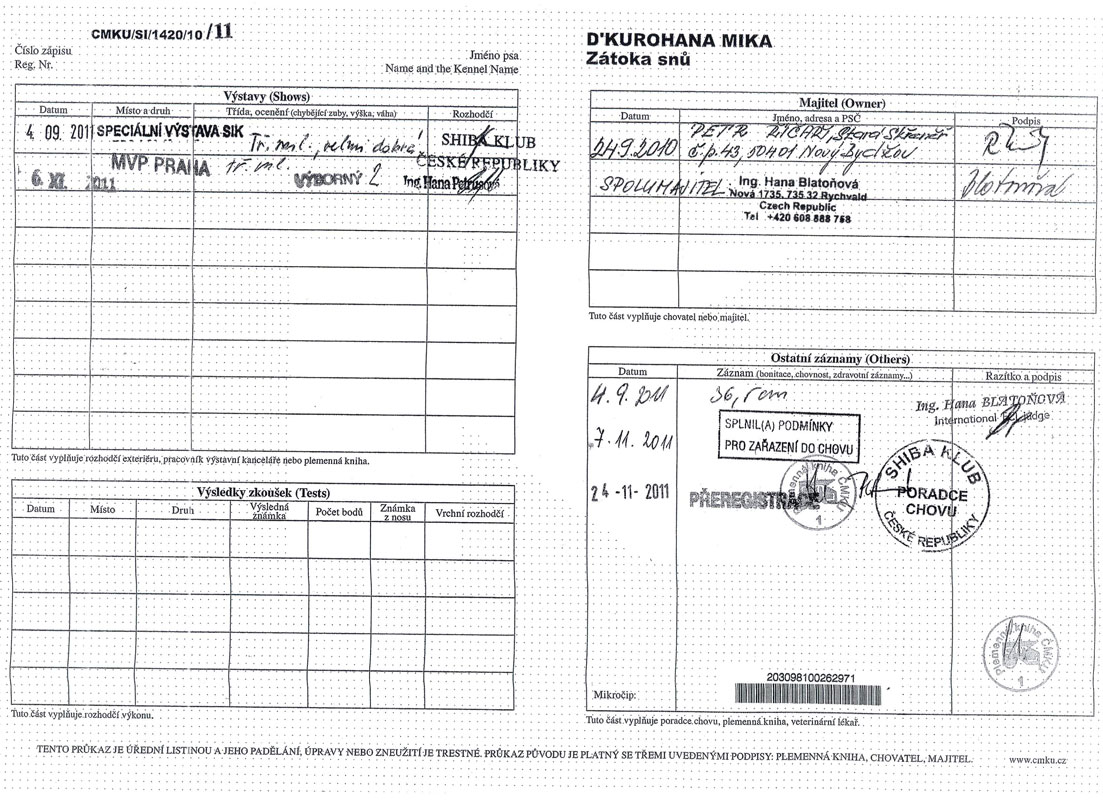 CMKU/SI/1420/10 /11
Číslo zápisu
Reg. Nr.
Jméno psa
Name and the Kennel Name
Výstavy (Shows)
Datum Místo a druh Třída, ocenění (chybějící zuby, výška, váha) Rozhodčí
4. 09. 2011 SPECIÁLNÍ VÝSTAVA SIK Tř. ml., velmi dobrá SHIBA KLUB
ČESKÉ REPUBLIKY
6. XI. 2011 MVP PRAHA tř. ml. VÝBORNÝ 2 Ing. Hana Petrusová
Tuto část vyplňuje rozhodčí exteriéru, pracovník výstavní kanceláře nebo plemenná kniha.
Výsledky zkoušek (Tests)
Datum Místo Druh Výsledná známka Počet bodů Známka z nosu Vrchní rozhodčí
Tuto část vyplňuje rozhodčí výkonu.
D'KUROHANA MIKA
Zátoka snů
Majitel (Owner)
Datum Jméno, adresa a PSČ Podpis
24.9.2010 PETR
č.p. 43, 50401 Nový Bydžov
SPOLUMAJITEL Ing. Hana Blatoňová
Nová 1735, 735 32 Rychvald
Czech Republic
Tel +420 608 888 768
Tuto část vyplňuje chovatel nebo majitel.
Ostatní záznamy (Others)
Datum Záznam (bonitace, chovnost, zdravotní záznamy...) Razítko a podpis
4. 9. 2011 36, cm Ing. Hana BLATOŇOVÁ
International Judge
7. 11. 2011 SPLNIL(A) PODMÍNKY
PRO ZAŘAZENÍ DO CHOVU
24 -11- 2011 PŘEREGISTRACE
Plemenná kniha ČMKU
1
SHIBA KLUB
PORADCE
CHOVU
ČESKÉ REPUBLIKY
Plemenná kniha ČMKU
1
203098100262971
Mikročip:
Tuto část vyplňuje poradce chovu, plemenná kniha, veterinární lékař.
TENTO PRŮKAZ JE ÚŘEDNÍ LISTINOU A JEHO PADĚLÁNÍ, ÚPRAVY NEBO ZNEUŽITÍ JE TRESTNÉ. PRŮKAZ PŮVODU JE PLATNÝ SE TŘEMI UVEDENÝMI PODPISY: PLEMENNÁ KNIHA, CHOVATEL, MAJITEL.
www.cmku.cz